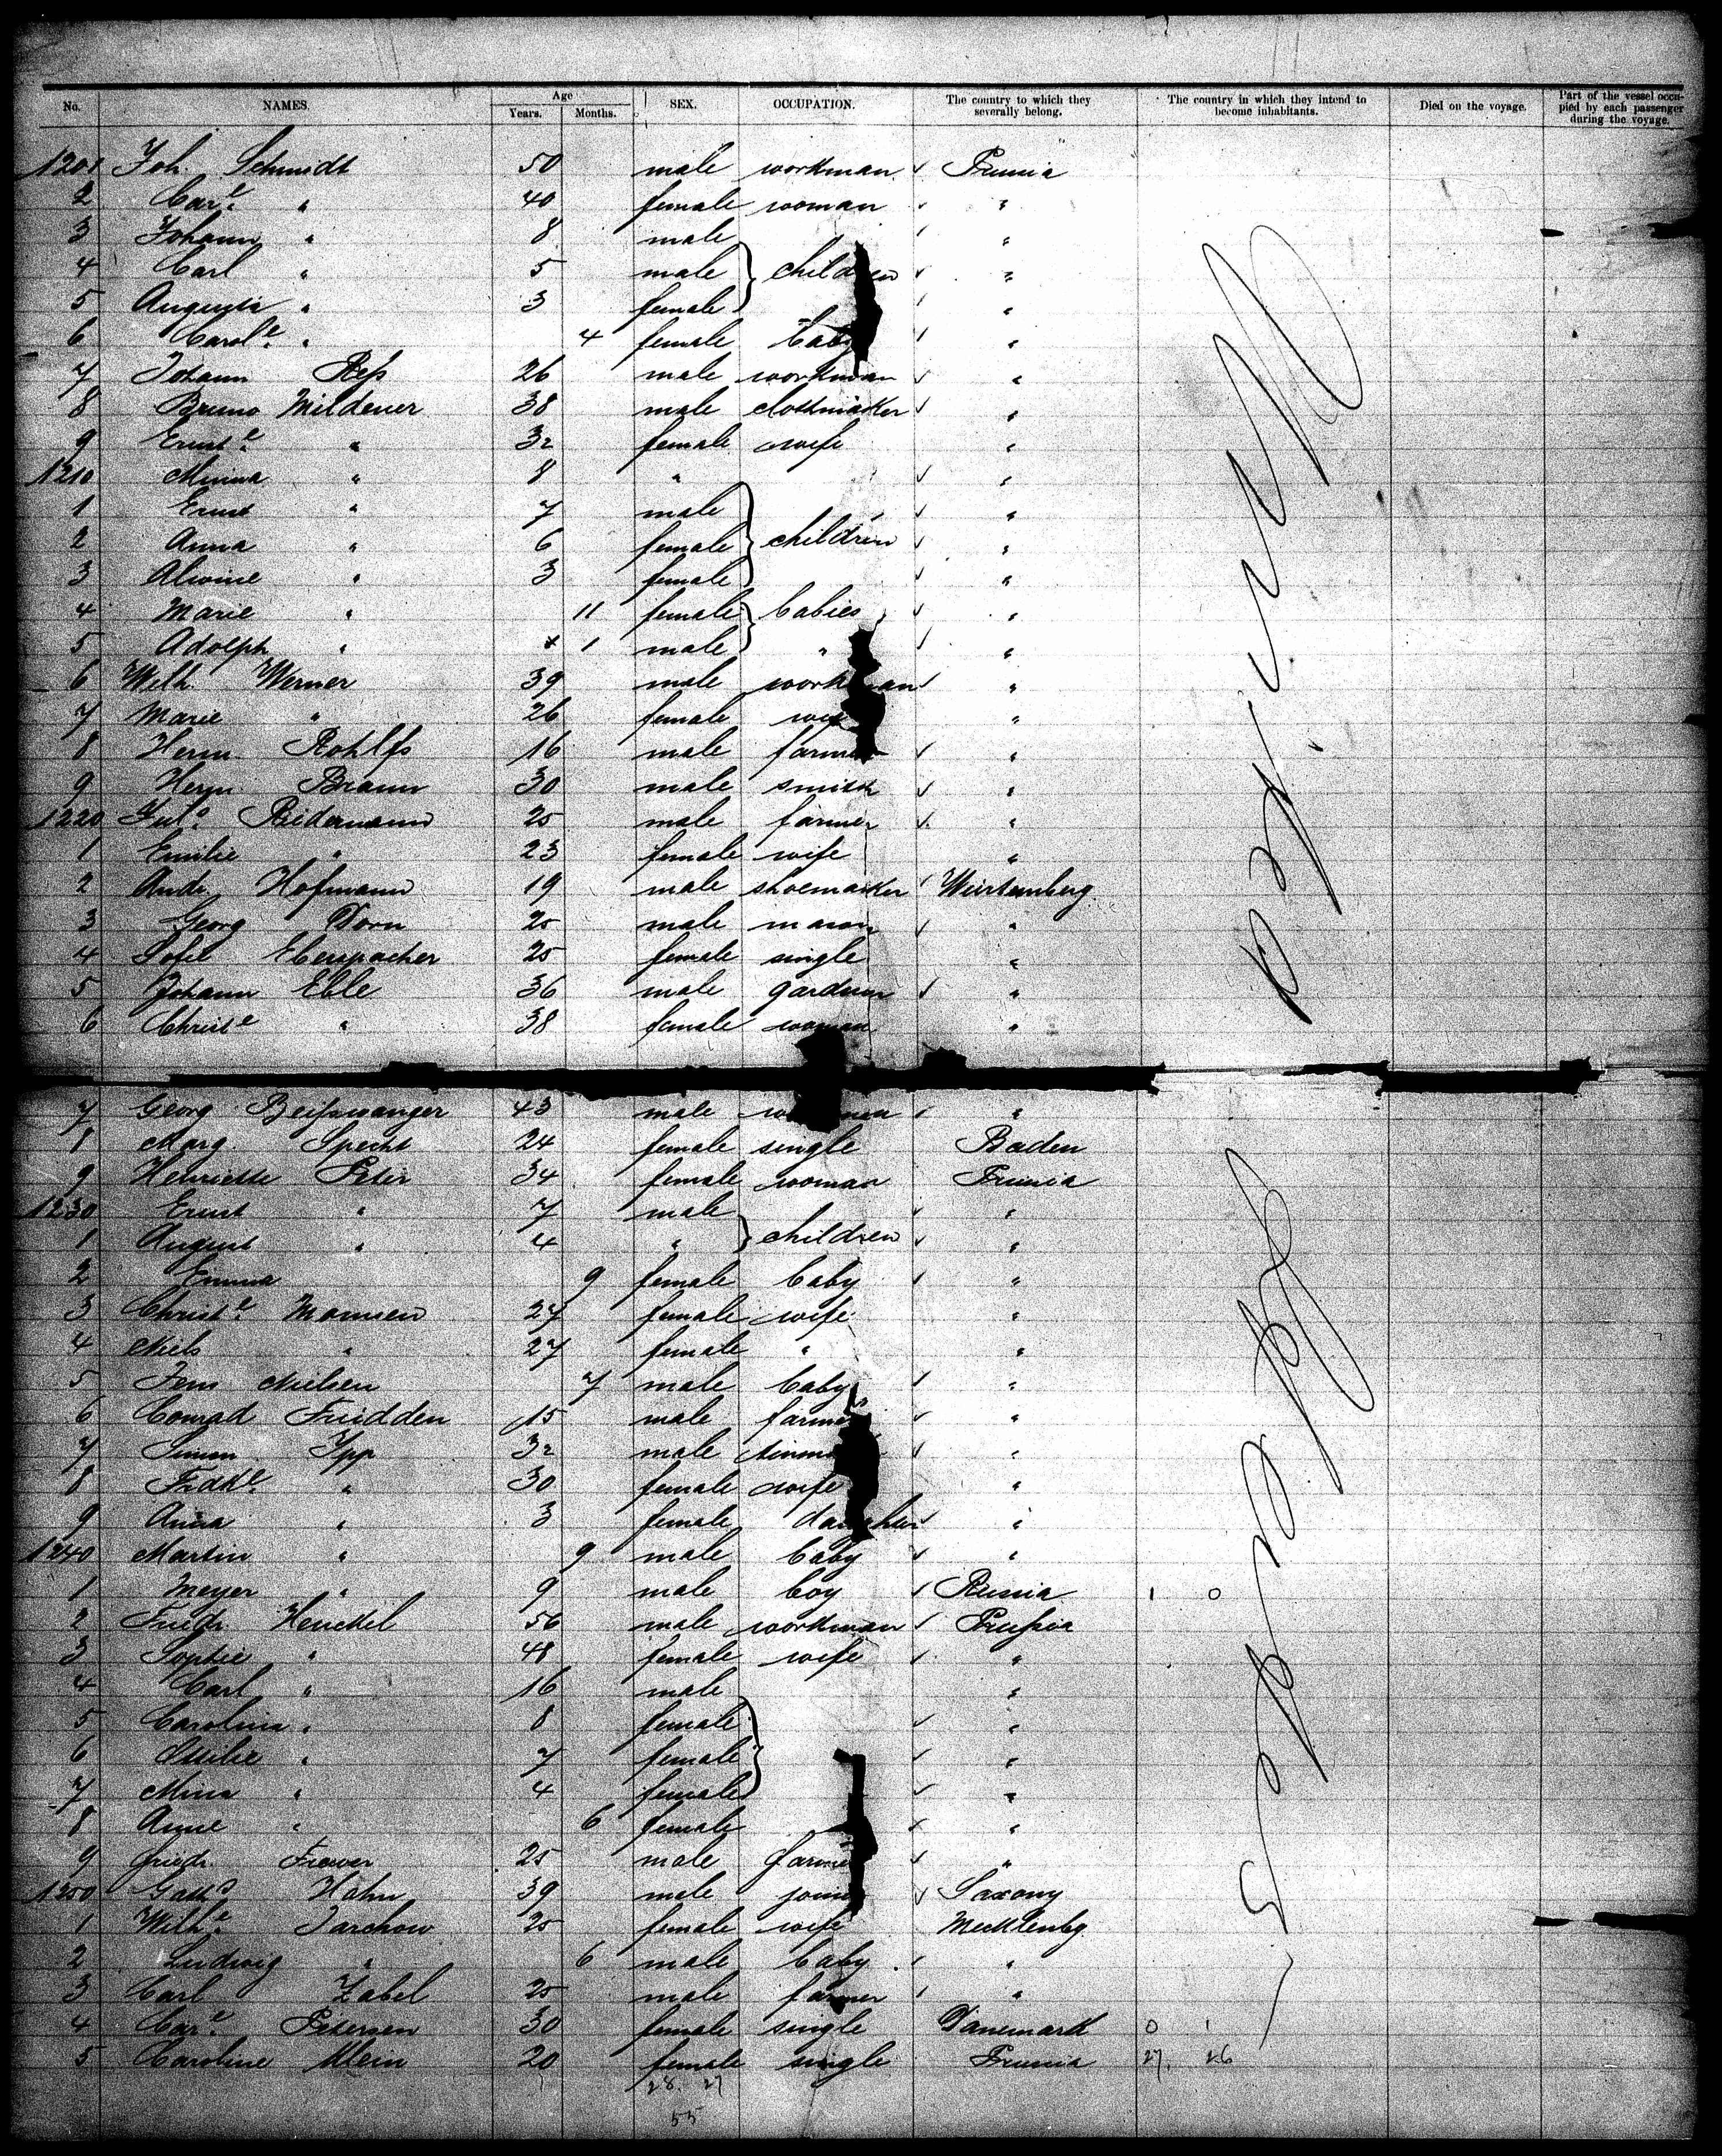 No. NAMES. Age Years. Months. SEX. OCCUPATION. The country to which they severally belong. The country in which they intend to become inhabitants. Died on the voyage. Part of the vessel occupied by each passenger during the voyage.
1201 Joh. Schmidt 50 male workman ✓ Prussia
2 Care. " 40 female woman ✓ "
3 Johann " 8 male ✓ "
4 Carl " 5 male children ✓ "
5 Augusta " 3 female ✓ "
6 Carole. " 4 female baby ✓ "
7 Johann 26 male workman ✓ "
8 Bruno Mildener 38 male clothmaker ✓ "
9 Ernste. " 32 female wife "
1210 Minna " 8 " ✓ "
1 Ernst " 7 male ✓ "
2 Anna " 6 female children ✓ "
3 Alwine " 3 female ✓ "
4 Marie " 11 female babies ✓ "
5 Adolph " 1 male " ✓ "
6 Wilh. Werner 39 male workman ✓ "
7 Marie " 26 female wife "
8 Herm. Rohlfs 16 male farmer ✓ "
9 Herm. Braun 30 male smith ✓ "
1220 Juls. Ridemann 25 male farmer ✓ "
1 Emilie " 23 female wife "
2 Andr. Hofmann 19 male shoemaker ✓ Würtemberg
3 Georg Dorn 25 male mason ✓ "
4 Sofie Eberspacher 25 female single "
5 Johann Eble 36 male gardner ✓ "
6 Christe " 38 female woman "
7 Georg Beifswanger 43 male ✓ "
8 Marg. Specht 24 female single Baden
9 Henriette Peter 34 female woman Prussia
1230 Ernst " 7 male ✓ "
1 August " 4 " children ✓ "
2 Emma 9 female baby ✓ "
3 Christe. Momsen 27 female wife "
4 Niels " 27 female " "
5 Jens Nielsen 7 male baby ✓ "
6 Conrad Fridden 15 male farmer ✓ "
7 Simon Ipp 32 male ✓ "
8 Frdke. " 30 female wife "
9 Anna " 3 female daughter ✓ "
1240 Martin " 9 male baby ✓ "
1 Meyer " 9 male boy ✓ Russia 1 0
2 Friedr. Henckel 56 male workman ✓ Prussia
3 Sophie " 48 female wife ✓ "
4 Carl " 16 male "
5 Carolina " 8 female ✓ "
6 Ottilie " 7 female ✓ "
7 Mina " 4 female ✓ "
8 Anne " 6 female ✓ "
9 Friedr. 25 male farmer ✓ "
1250 Hahn 39 male joiner ✓ Saxony
1 Wilhe. Tarchow 25 female wife Mecklenbg.
2 Ludwig " 6 male baby ✓ "
3 Carl Zabel 25 male farmer ✓ "
4 Care. Petersen 30 female single Danemark 0 1
5 Caroline Klein 20 female single Prussia 27. 26
28. 27
55